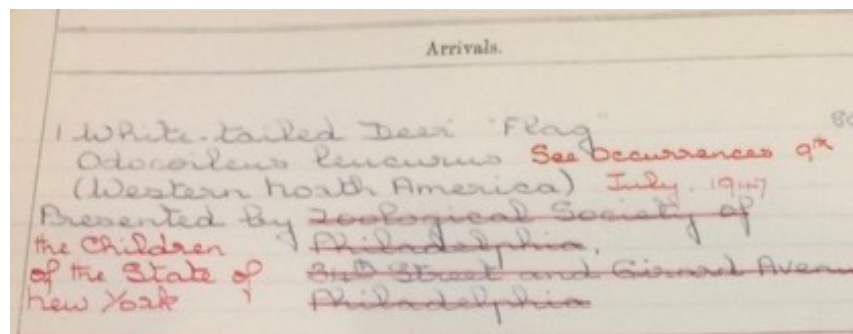 Arrivals.
1 White-tailed Deer "Flag"
Odocoileus leucurus See Occurrences 9th
(Western North America) July. 1947
Presented by Zoological Society of
the Children Philadelphia,
of the State of 34th Street and Girard Avenu
New York Philadelphia